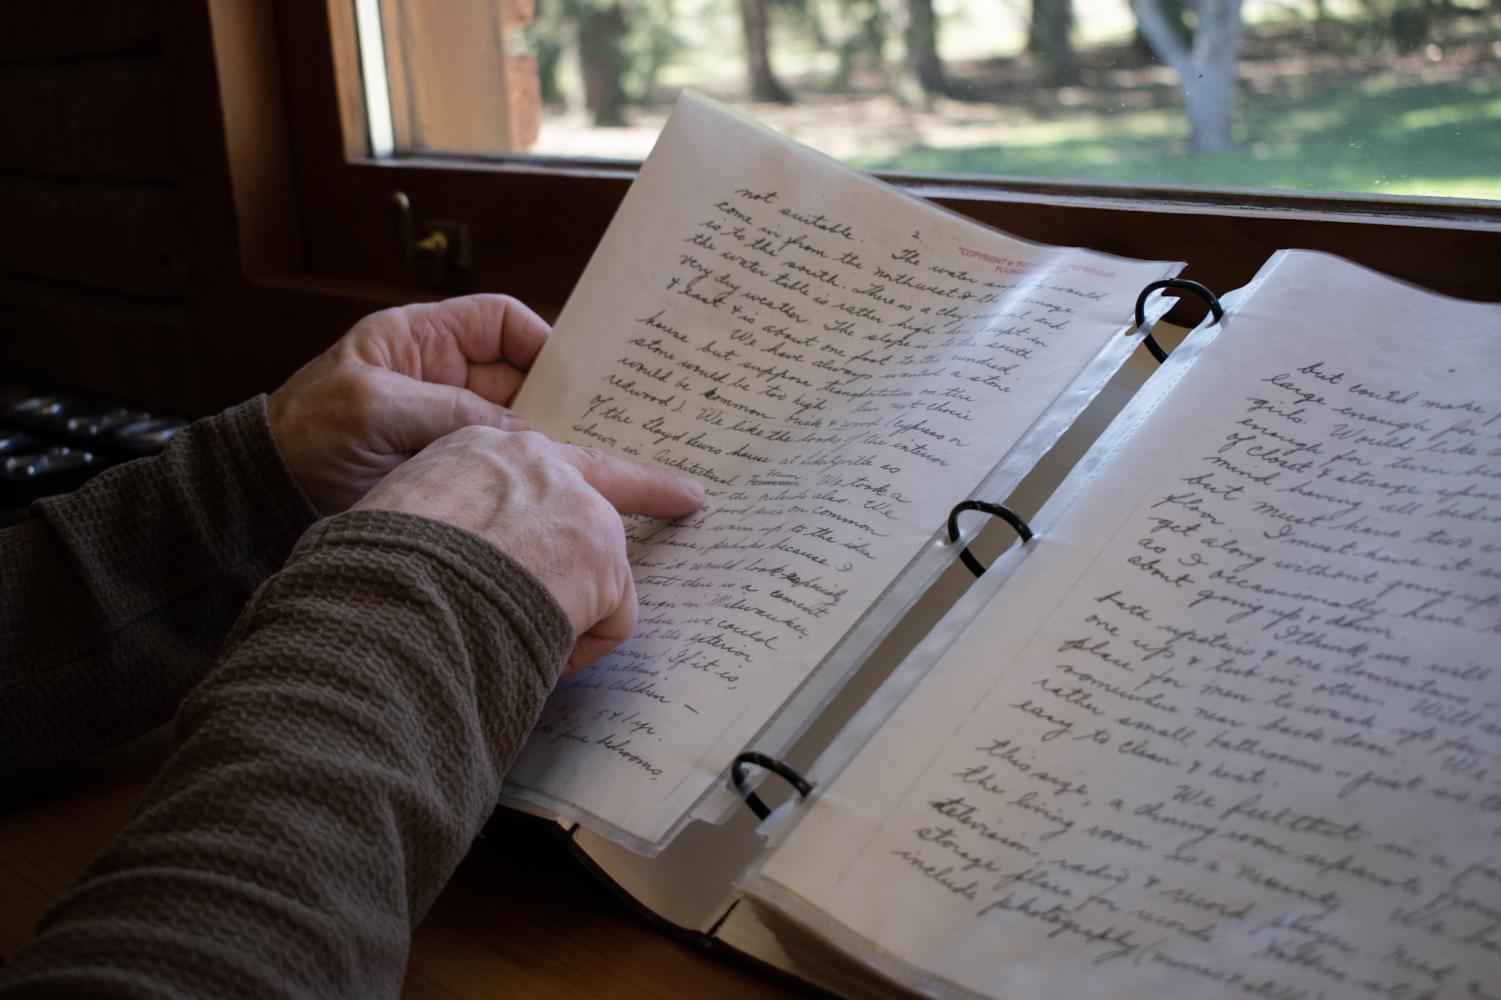 2.
"COPYRIGHT © THE LLOYD WRIGHT
FOUNDATION
not suitable. The water would
come in from the northwest & the drainage
is to the south. There is a clay and
the water table is rather high except in
very dry weather. The slope is to the south
& east & is about one foot to the hundred.
We have always wanted a stone
house but suppose transportation on the
stone would be too high. Our next choice
would be common brick & wood (cypress or
redwood). We like the looks of the interior
of the Lloyd Lewis house at Libertyville as
shown in Architectural Forum. We took a
the outside also. We
good price on common
warm up to the idea
house, perhaps because I
how it would look especially
that this is a cement
design in Milwaukee
where we could
at the exterior
owner! If it is,
address
children —
5 & 1 yr.
five bedrooms,
but could make
large enough for
girls. Would like
enough for twin
of closet & storage space
mind having all
but must have two
floor. I must have it
get along without going up
as I occasionally have
about going up & down
I think we will
bath upstairs & one downstairs
one up, & tub in other. Will
place for men to wash up
somewhere near back door. We
rather small bathrooms - just
easy to clean & heat.
We feel that in a
this size, a dining room separate
the living room is a necessity.
television, radio & record player. Need
storage place for records.
include photography (movies &